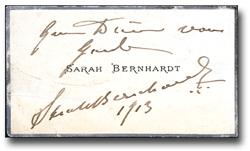 Que Dieu vous
garde
SARAH BERNHARDT
Sarah Bernhardt
1913